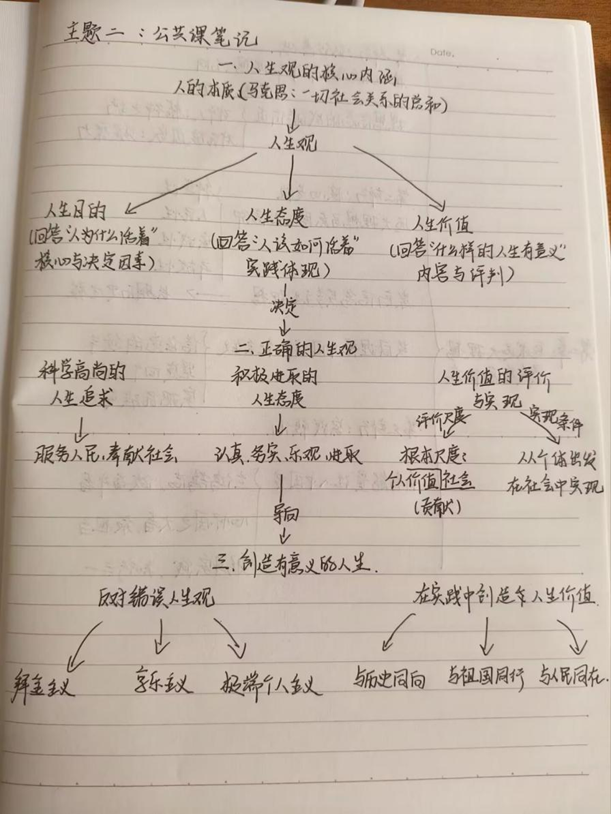 主题二：公共课笔记
Date.
一.人生观的核心内涵
人的本质(马克思：一切社会关系的总和)
人生观
人生目的
(回答"人为什么活着"
核心与决定因素)
人生态度
(回答"人该如何活着"
实践体现)
人生价值
(回答"什么样的人生有意义"
内容与评判)
决定
二.正确的人生观
科学高尚的
人生追求
积极进取的
人生态度
人生价值的评价
与实现
评价尺度
实现条件
服务人民,奉献社会
认真.务实.乐观.进取
根本尺度：
个人价值 社会
(贡献)
从个体出发
在社会中实现
导向
三.创造有意义的人生.
反对错误人生观
在实践中创造人生价值.
拜金主义
享乐主义
极端个人主义
与历史同向
与祖国同行
与人民同在.